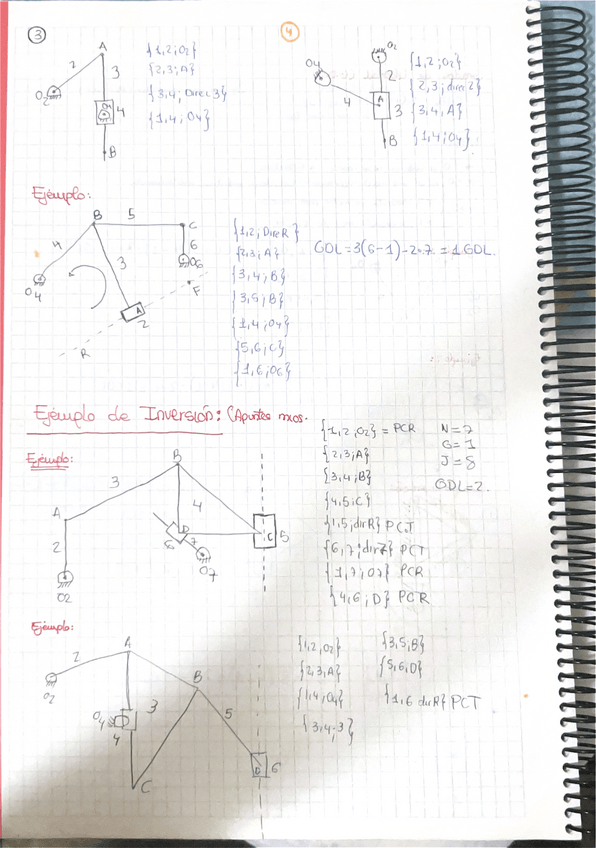 3
A
2
3
O2
4
O4
B
{1,2;O2}
{2,3;A}
{3,4,Direc3}
{1,4;O4}
4
O2
O4
2
4
A
3
B
{1,2;O2}
{2,3;direc2}
{3,4,A}
{1,4;O4}
Ejemplo:
B
5
C
4
6
3
O6
O4
F
A
2
R
{1,2,DireR}
{2,3;A}
{3,4;B}
{3,5;B}
{1,4;O4}
{5,6;C}
{1,6;O6}
GDL=3(6-1)-2·7=1GDL.
Ejemplo de Inversión: (Apuntes mxos.
Ejemplo:
B
3
4
A
D
C
5
2
6
7
O2
O7
{1,2,O2} = PCR
{2,3;A}
{3,4;B}
{4,5;C}
{1,5,dirR} PCT
{6,7;dir7} PCT
{1,7;O7} PCR
{4,6,D} PCR
N=7
G=1
J=8
GDL=2.
Ejemplo:
A
2
O2
B
O4
3
4
5
D
6
C
{1,2,O2}
{2,3,A}
{1,4;O4}
{3,4;3}
{3,5,B}
{5,6,D}
{1,6 dirR} PCT